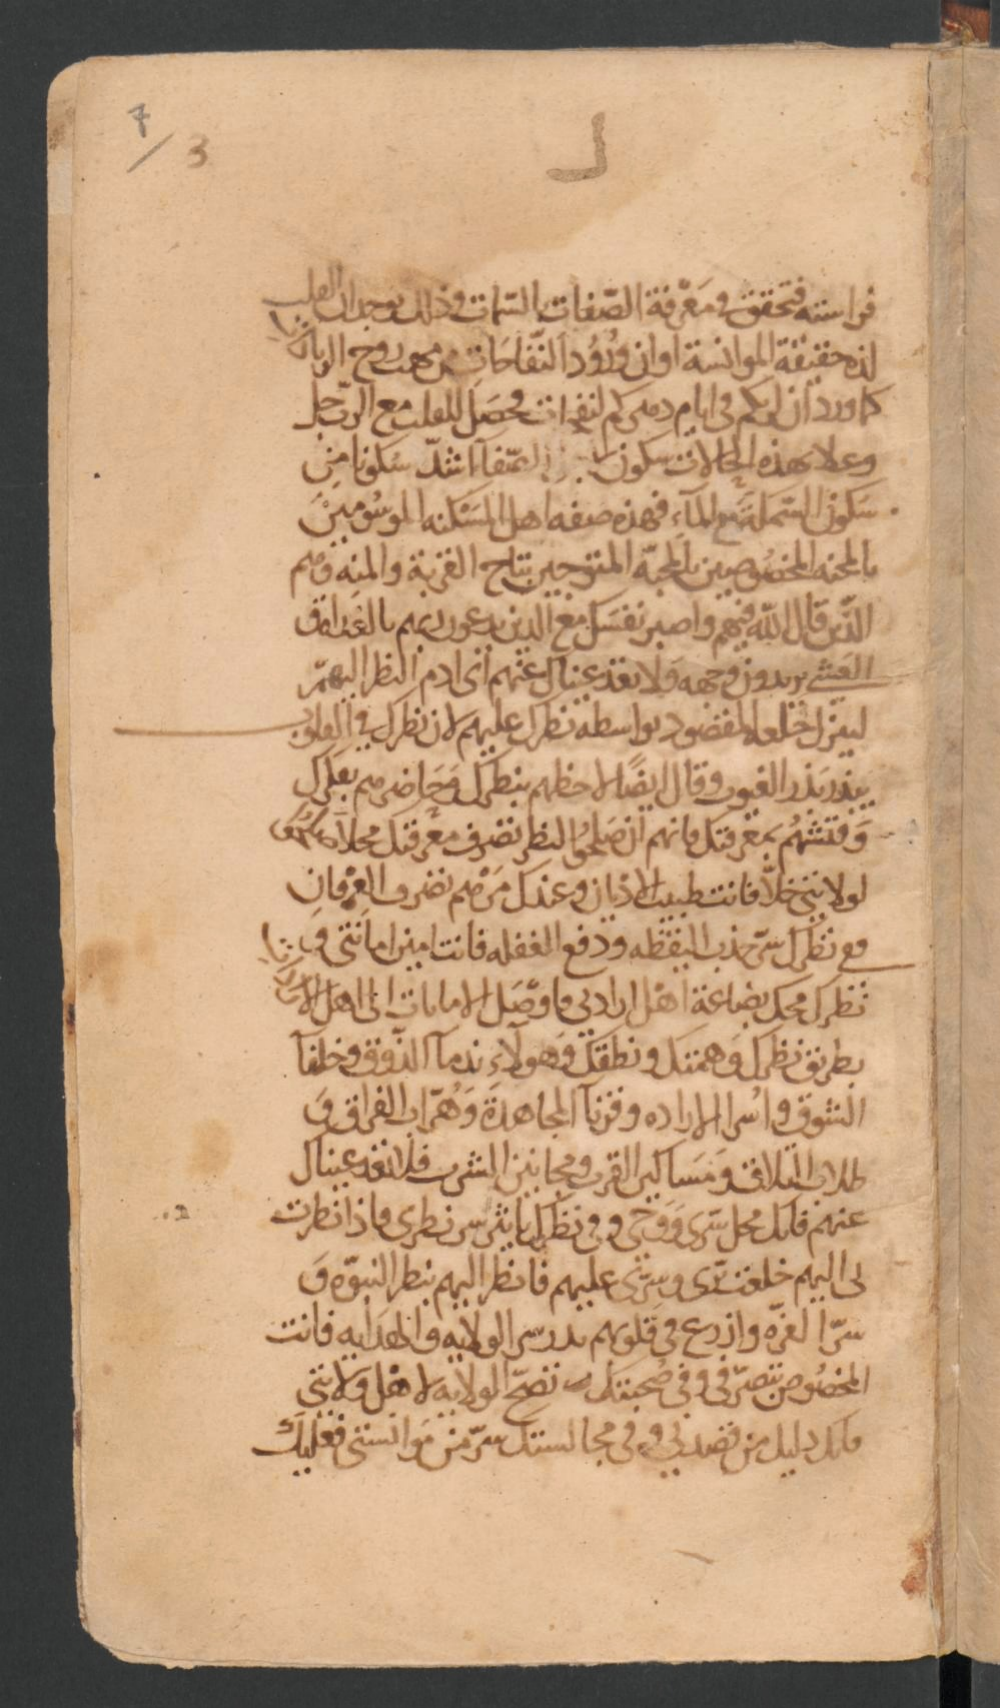 7/3
فراسته فتحقق في معرفة الصفات بالسمات وذلك بوجدان القلب
لذه حقيقة الموانسة اوان ورود النفاحات من مهب روح
كما ورد ان لربكم في ايام دهركم لنفحات فيحصل للقلب مع الرب جل
وعلا بهذه الحالات سكون اشد سكونا من
سكون السمكة مع المآء فهذه صفه اهل المسكنه الموسومين
بالمحنه المخصوصين بالمحبة المتوجين بتاج القربة والمنه وهم
الذين قال الله فيهم واصبر نفسك مع الذين يدعون ربهم بالغداة و
العشي يريدون وجهه ولا تعد عيناك عنهم اي ادم النظر اليهم
لينزل خلعة المقصود بواسطة نظرك عليهم لان نظرك في القلوب
يبذر بذر الغيوب وقال ايضا لاحظهم بنظرك وحاضرهم بفكرك
وفتشهم بمعرفتك فانهم ان صلحوا لنظر تصرف معرفتك محلا
لولايتي خلا فانت طبيب الاديان وعندك مرهم تصرف العرفان
مع نظرك سر جذب اليقظه ودفع الغفله فانت امين امانتي وفي
نظرك محك بضاعة اهل ارادتي فاوصل الامانات الى اهل
بطريق نظرك وهمتك ونطقك وهولآء ندمآ الذوق وخلفآ
الشوق واسرا الاراده وقرنآ المجاهدة وهراب الفراق و
طلاب التلاق ومساكين القرب ومجانين الشرب فلا تعد عيناك
عنهم فانك محل سري ووحي وفي نظرك تاثير سر نظري فاذا نظرت
لي اليهم خلعت بري وسري عليهم فانظر اليهم بنظر النبوة و
سر العزه وازرع في قلوبهم بذر سر الولايه والهدايه فانت
المخصوص بتصرفي وفي صحبتك تصح الولايه لاهل ولايتي
فانك دليل من قصدني وفي مجالستك سر من موانستي فعليك